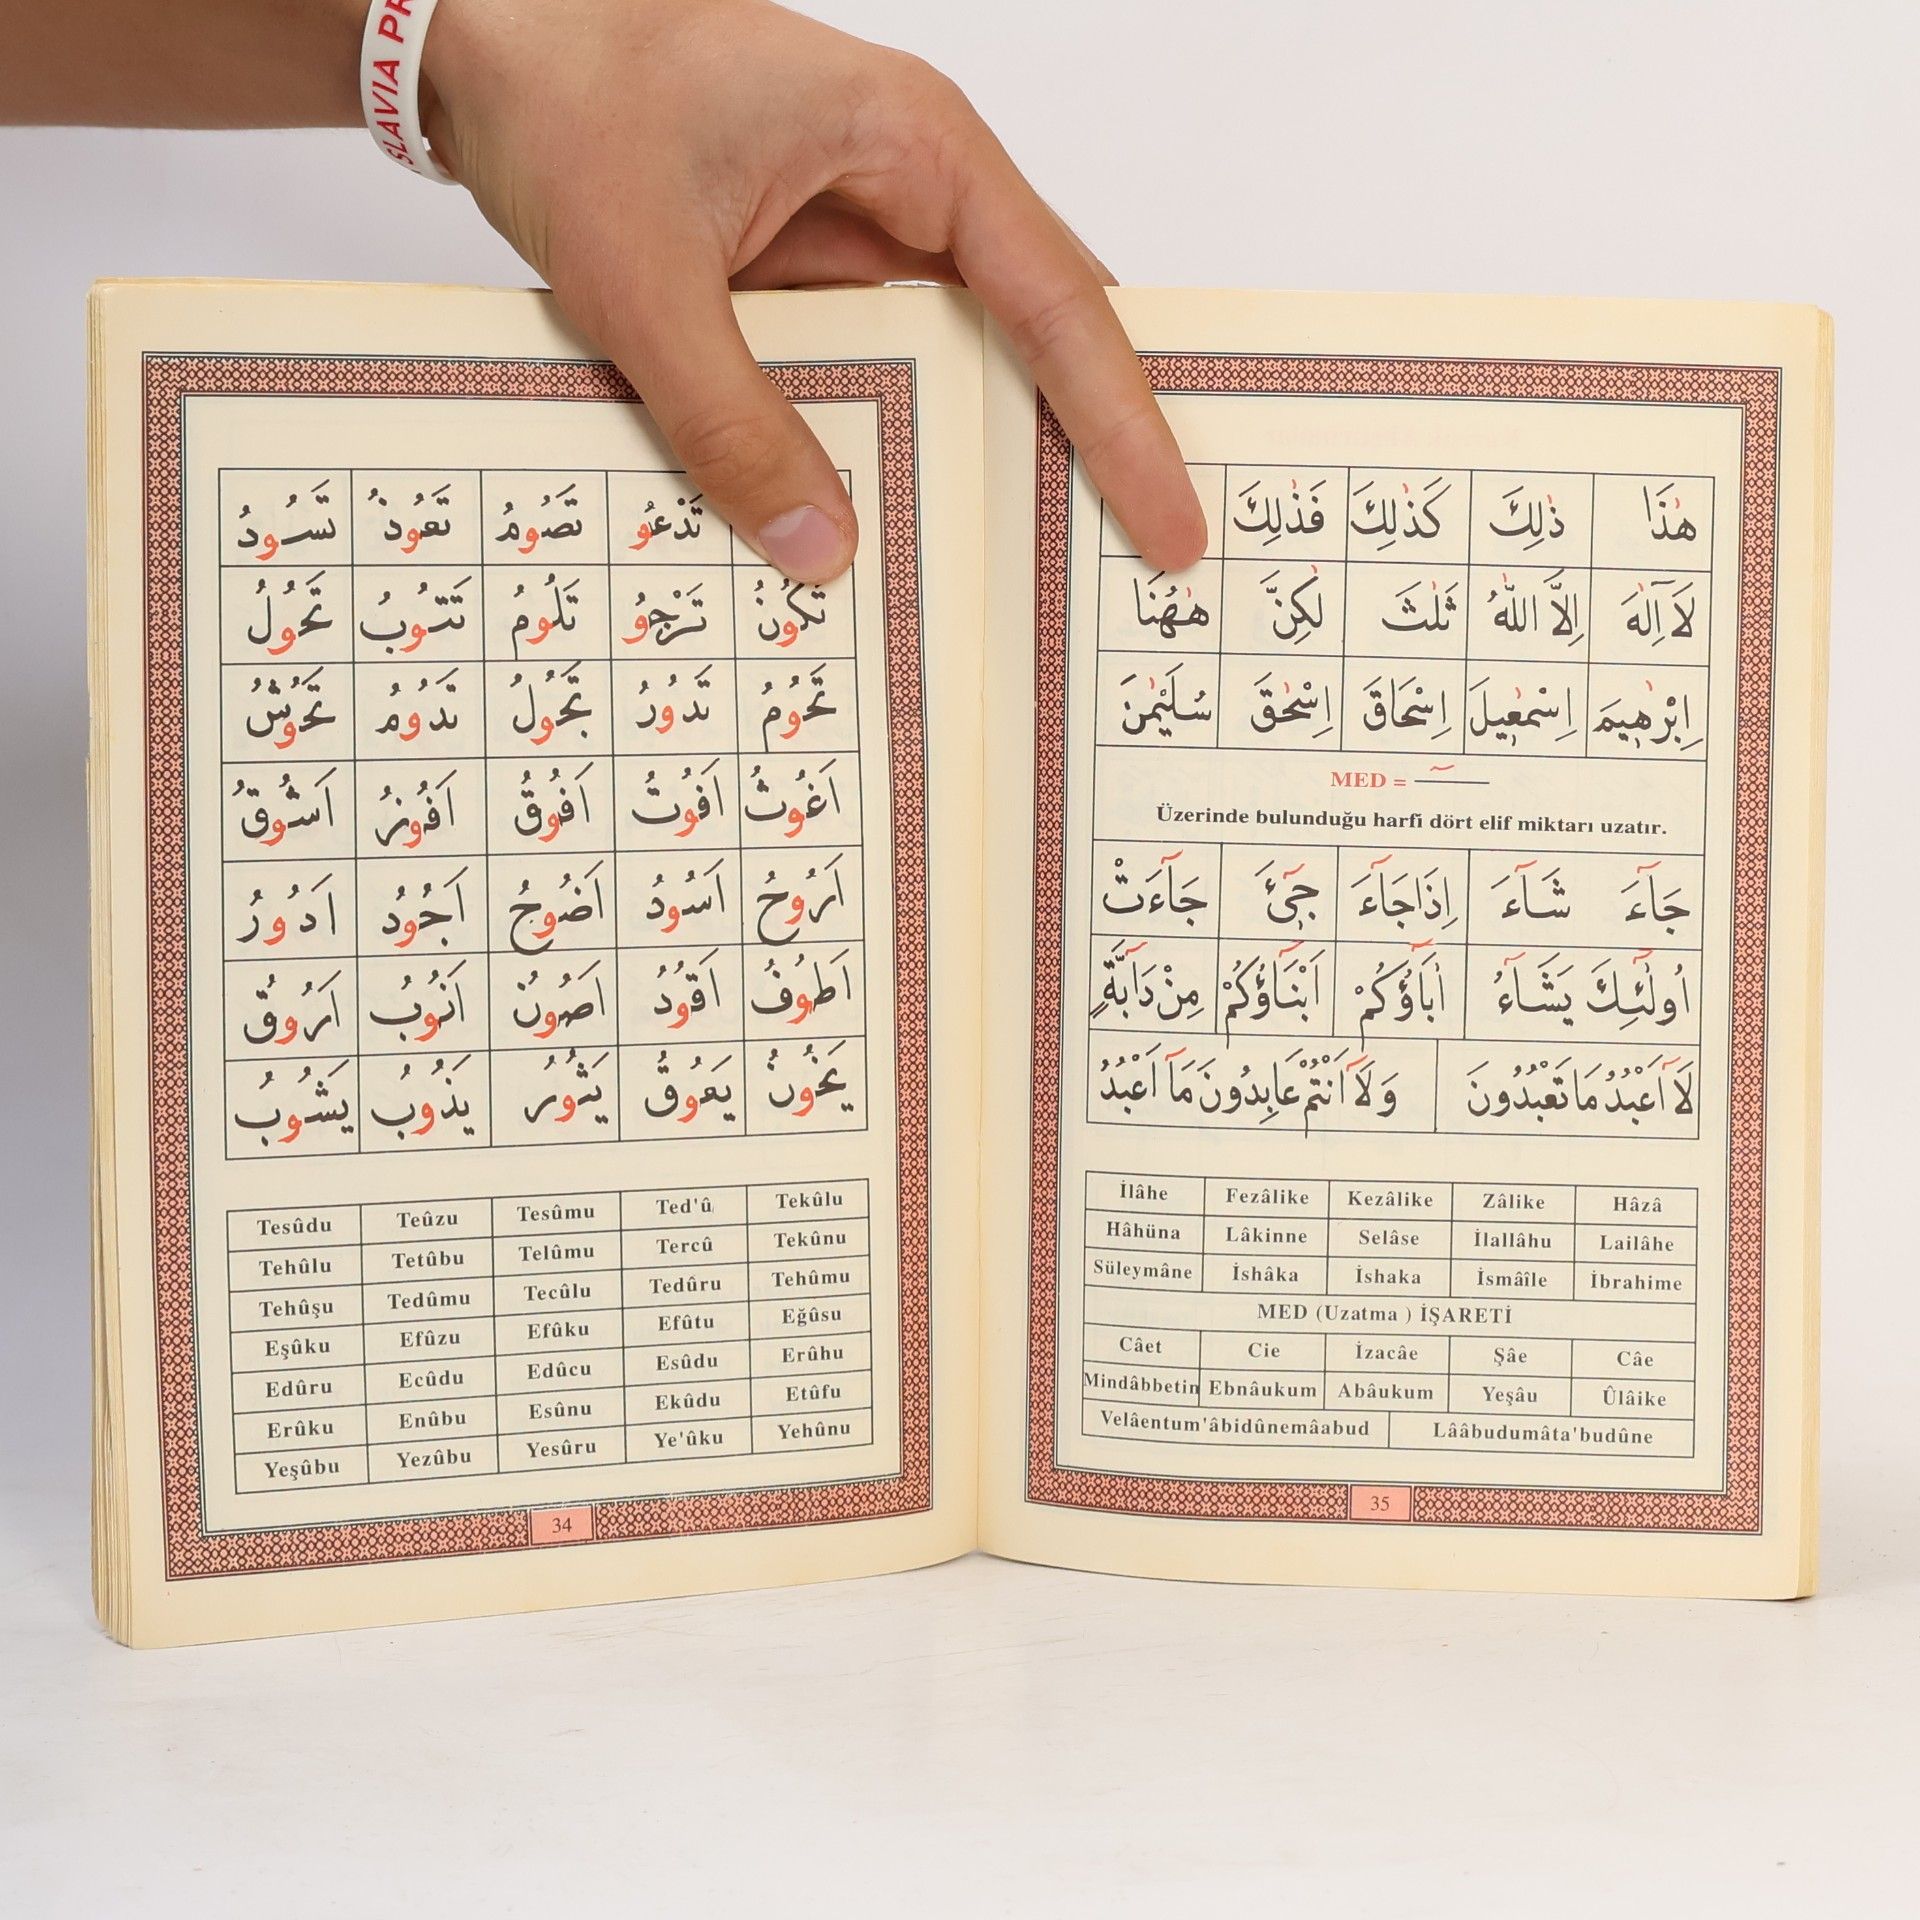 SLAVIA PR
تَدْعُو تَصُومُ تَعُوذُ تَسُودُ
تَكُونُ تَرْجُو تَلُومُ تَتُوبُ تَحُولُ
تَحُومُ تَدُورُ تَجُولُ تَدُومُ تَحُوشُ
اَغُوثُ اَفُوتُ اَفُوقُ اَفُوزُ اَشُوقُ
اَرُوحُ اَسُودُ اَضُوجُ اَجُودُ اَدُورُ
اَطُوفُ اَقُودُ اَصُونُ اَنُوبُ اَرُوقُ
يَخُونُ يَعُوقُ يَثُورُ يَذُوبُ يَشُوبُ
Tesûdu Teûzu Tesûmu Ted'û Tekûlu
Tehûlu Tetûbu Telûmu Tercû Tekûnu
Tehûşu Tedûmu Tecûlu Tedûru Tehûmu
Eşûku Efûzu Efûku Efûtu Eğûsu
Edûru Ecûdu Edûcu Esûdu Erûhu
Erûku Enûbu Esûnu Ekûdu Etûfu
Yeşûbu Yezûbu Yesûru Ye'ûku Yehûnu
34
هٰذَا ذٰلِكَ كَذٰلِكَ فَذٰلِكَ
لَآ اِلٰهَ اِلَّا اللّٰهُ ثَلٰثَ لٰكِنَّ هٰهُنَا
اِبْرٰهِيمَ اِسْمٰعِيلَ اِسْحَاقَ اِسْحٰقَ سُلَيْمٰنَ
MED = ـــٓـــ
Üzerinde bulunduğu harfi dört elif miktarı uzatır.
جَآءَ شَآءَ اِذَاجَآءَ جِىٓءَ جَآءَتْ
اُولٰٓئِكَ يَشَآءُ اٰبَآؤُكُمْ اَبْنَآؤُكُمْ مِنْ دَآبَّةٍ
لَآ اَعْبُدُ مَا تَعْبُدُونَ وَلَآ اَنْتُمْ عَابِدُونَ مَآ اَعْبُدُ
İlâhe Fezâlike Kezâlike Zâlike Hâzâ
Hâhüna Lâkinne Selâse İlallâhu Lailâhe
Süleymâne İshâka İshaka İsmâîle İbrahime
MED (Uzatma ) İŞARETİ
Câet Cie İzacâe Şâe Câe
Mindâbbetin Ebnâukum Abâukum Yeşâu Ûlâike
Velâentum'âbidûnemâabud Lââbudumâta'budûne
35